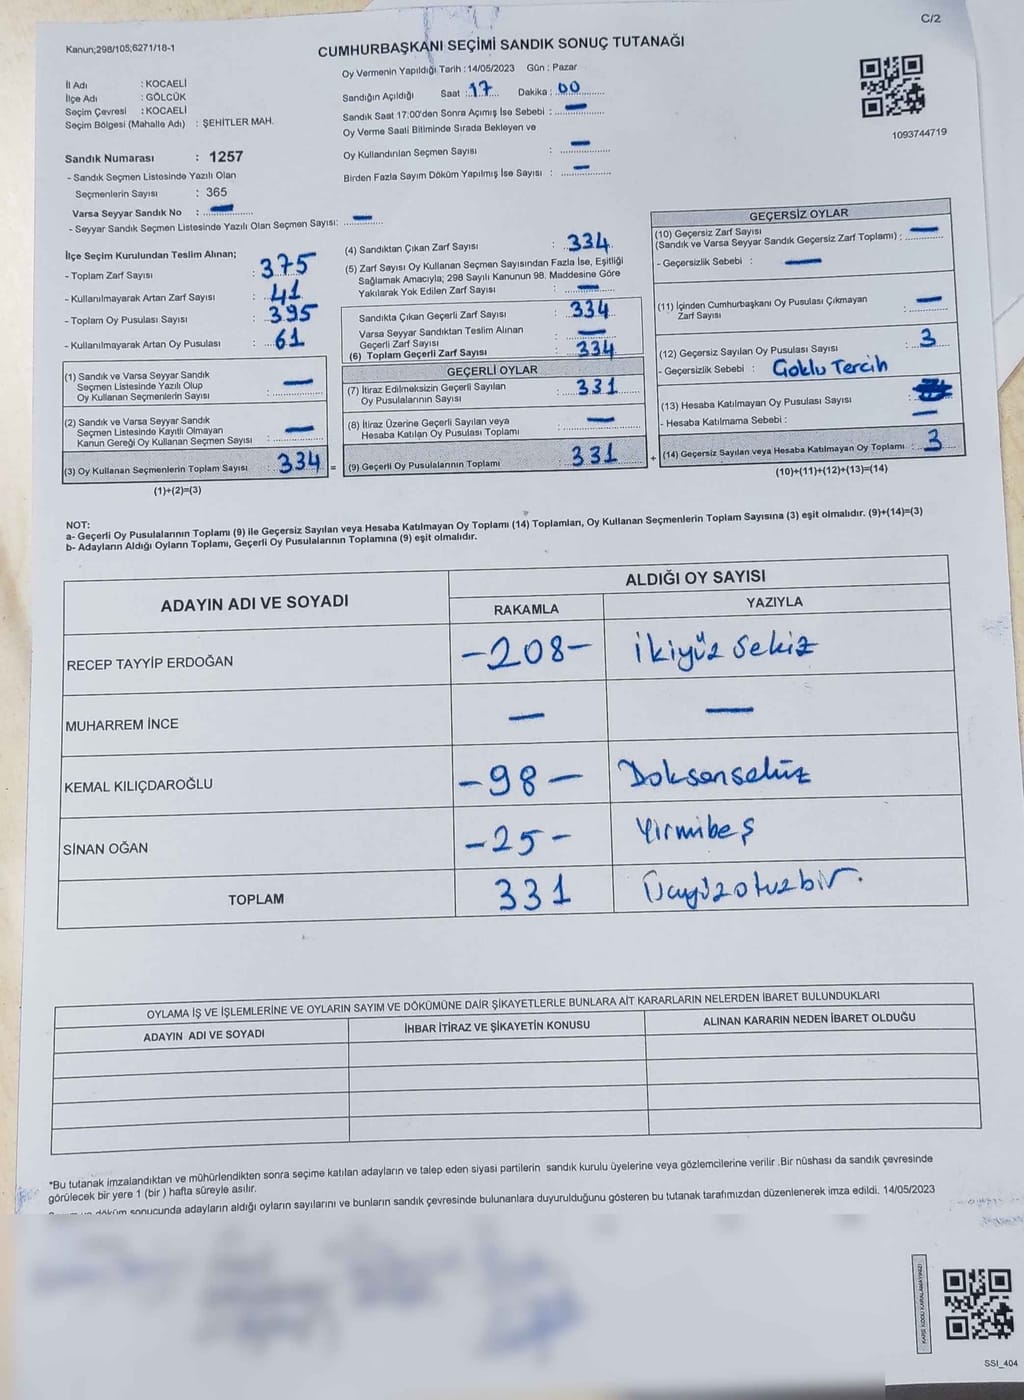 C/2
Kanun;298/105;6271/18-1
CUMHURBAŞKANI SEÇİMİ SANDIK SONUÇ TUTANAĞI
Oy Vermenin Yapıldığı Tarih : 14/05/2023 Gün : Pazar
İl Adı : KOCAELİ
İlçe Adı : GÖLCÜK
Seçim Çevresi : KOCAELİ
Seçim Bölgesi (Mahalle Adı) : ŞEHİTLER MAH.
Sandığın Açıldığı Saat : 17 Dakika : 00
Sandık Saat 17:00'den Sonra Açımış İse Sebebi : —
Oy Verme Saati Bitiminde Sırada Bekleyen ve
Oy Kullandırılan Seçmen Sayısı : —
Birden Fazla Sayım Döküm Yapılmış İse Sayısı : —
1093744719
Sandık Numarası : 1257
- Sandık Seçmen Listesinde Yazılı Olan
Seçmenlerin Sayısı : 365
Varsa Seyyar Sandık No : —
- Seyyar Sandık Seçmen Listesinde Yazılı Olan Seçmen Sayısı: —
İlçe Seçim Kurulundan Teslim Alınan;
- Toplam Zarf Sayısı : 375
- Kullanılmayarak Artan Zarf Sayısı : 41
- Toplam Oy Pusulası Sayısı : 395
- Kullanılmayarak Artan Oy Pusulası : 61
(1) Sandık ve Varsa Seyyar Sandık
Seçmen Listesinde Yazılı Olup
Oy Kullanan Seçmenlerin Sayısı : —
(2) Sandık ve Varsa Seyyar Sandık
Seçmen Listesinde Kayıtlı Olmayan
Kanun Gereği Oy Kullanan Seçmen Sayısı : —
(3) Oy Kullanan Seçmenlerin Toplam Sayısı : 334 =
(1)+(2)=(3)
(4) Sandıktan Çıkan Zarf Sayısı : 334
(5) Zarf Sayısı Oy Kullanan Seçmen Sayısından Fazla İse, Eşitliği
Sağlamak Amacıyla; 298 Sayılı Kanunun 98. Maddesine Göre
Yakılarak Yok Edilen Zarf Sayısı : —
Sandıkta Çıkan Geçerli Zarf Sayısı : 334
Varsa Seyyar Sandıktan Teslim Alınan
Geçerli Zarf Sayısı : —
(6) Toplam Geçerli Zarf Sayısı : 334
GEÇERLİ OYLAR
(7) İtiraz Edilmeksizin Geçerli Sayılan
Oy Pusulalarının Sayısı : 331
(8) İtiraz Üzerine Geçerli Sayılan veya
Hesaba Katılan Oy Pusulası Toplamı : —
(9) Geçerli Oy Pusulalarının Toplamı : 331 +
GEÇERSİZ OYLAR
(10) Geçersiz Zarf Sayısı
(Sandık ve Varsa Seyyar Sandık Geçersiz Zarf Toplamı) : —
- Geçersizlik Sebebi : —
(11) İçinden Cumhurbaşkanı Oy Pusulası Çıkmayan
Zarf Sayısı : —
(12) Geçersiz Sayılan Oy Pusulası Sayısı : 3
- Geçersizlik Sebebi : Çoklu Tercih
(13) Hesaba Katılmayan Oy Pusulası Sayısı :
- Hesaba Katılmama Sebebi : —
(14) Geçersiz Sayılan veya Hesaba Katılmayan Oy Toplamı : 3
(10)+(11)+(12)+(13)=(14)
NOT:
a- Geçerli Oy Pusulalarının Toplamı (9) ile Geçersiz Sayılan veya Hesaba Katılmayan Oy Toplamı (14) Toplamları, Oy Kullanan Seçmenlerin Toplam Sayısına (3) eşit olmalıdır. (9)+(14)=(3)
b- Adayların Aldığı Oyların Toplamı, Geçerli Oy Pusulalarının Toplamına (9) eşit olmalıdır.
ADAYIN ADI VE SOYADI ALDIĞI OY SAYISI
RAKAMLA YAZIYLA
RECEP TAYYİP ERDOĞAN -208- ikiyüz sekiz
MUHARREM İNCE — —
KEMAL KILIÇDAROĞLU -98- Doksansekiz
SİNAN OĞAN -25- Yirmibeş
TOPLAM 331 Üçyüzotuzbir.
OYLAMA İŞ VE İŞLEMLERİNE VE OYLARIN SAYIM VE DÖKÜMÜNE DAİR ŞİKAYETLERLE BUNLARA AİT KARARLARIN NELERDEN İBARET BULUNDUKLARI
ADAYIN ADI VE SOYADI İHBAR İTİRAZ VE ŞİKAYETİN KONUSU ALINAN KARARIN NEDEN İBARET OLDUĞU
*Bu tutanak imzalandıktan ve mühürlendikten sonra seçime katılan adayların ve talep eden siyasi partilerin sandık kurulu üyelerine veya gözlemcilerine verilir .Bir nüshası da sandık çevresinde
görülecek bir yere 1 (bir ) hafta süreyle asılır.
döküm sonucunda adayların aldığı oyların sayılarını ve bunların sandık çevresinde bulunanlara duyurulduğunu gösteren bu tutanak tarafımızdan düzenlenerek imza edildi. 14/05/2023
KARE KODU KARALAMAYINIZ!
SSI_404